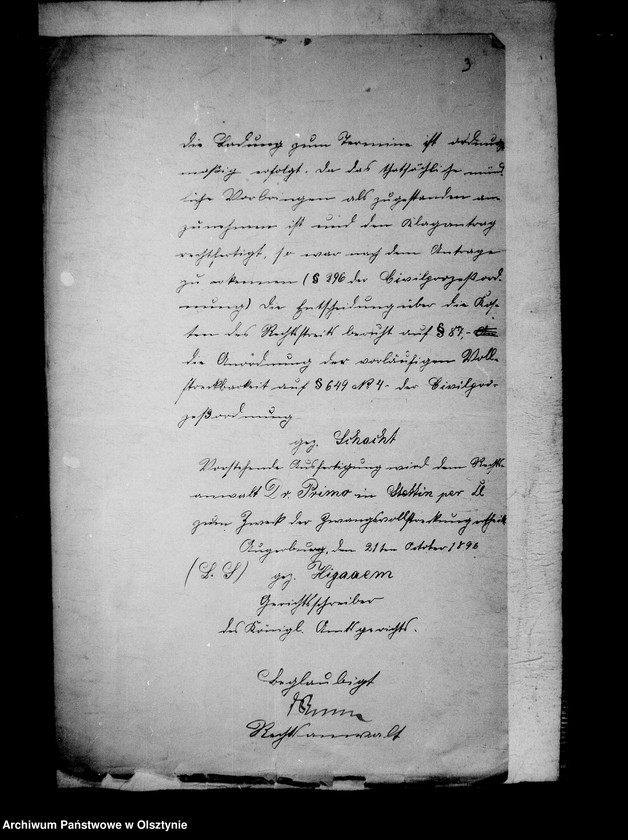 3
die Ladung zum Termine ist ordnungs
mäßig erfolgt. Da das thatsächliche münd
liche Vorbringen als zugestanden an
zunehmen ist und den Klagantrag
rechtfertigt, so war nach dem Antrage
zu erkennen (§ 296 der Civilprozeßord-
nung) Die Entscheidung über die Kos-
ten des Rechtsstreits beruht auf § 87,
die Anordnung der vorläufigen Voll-
streckbarkeit auf § 649 No 4- der Civilpro-
zeßordnung
gez. Schacht
Vorstehende Ausfertigung wird dem Rechts-
anwalt Dr. Primo in Stettin per
zum Zweck der Zwangsvollstreckung ertheilt
Angerburg, den 21ten October 1896
(L. S) gez.
Gerichtsschreiber
des Königl. Amtsgerichts.
Beglaubigt
Rechtsanwalt
Archiwum Państwowe w Olsztynie